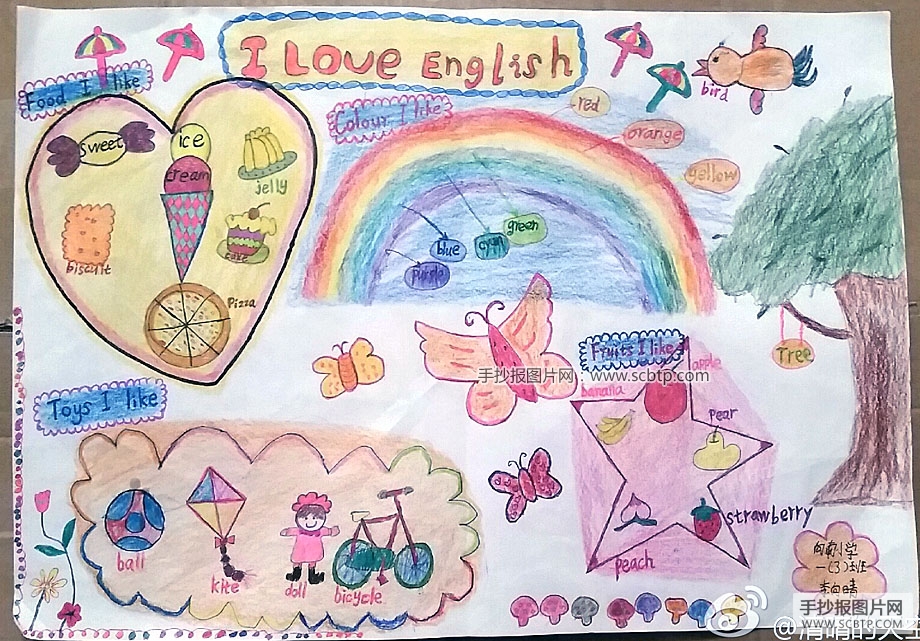 I Love English
Food I like
sweet
ice
cream
jelly
biscuit
cake
Pizza
Colour I like
red
orange
yellow
green
cyan
blue
purple
bird
Tree
手抄报图片网：www.scbtp.com
Fruits I like
apple
banana
pear
strawberry
peach
Toys I like
ball
kite
doll
bicycle
一(3)班
手抄报图片网
WWW.SCBTP.COM